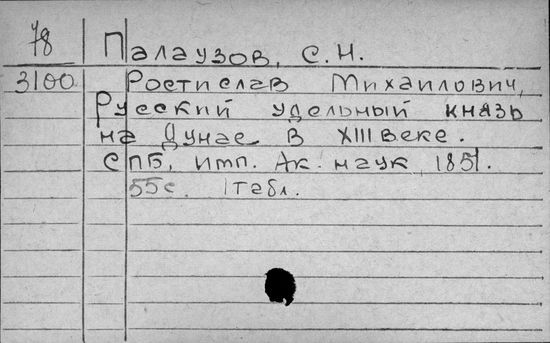 78
Палаузов, С.Н.
3100
Ростислав Михаилович,
Русский удельный князь
на Дунае в XIII веке.
СПБ, Имп. Ак. наук, 1851.
55с. 1 табл.